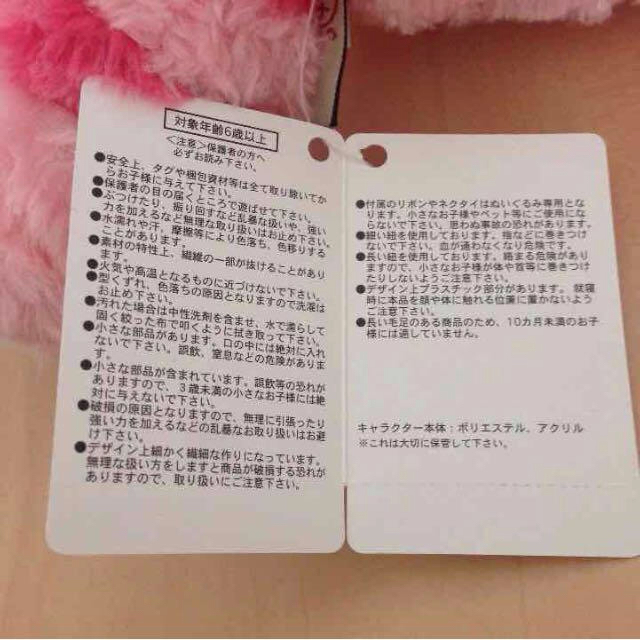 対象年齢6歳以上
＜注意＞保護者の方へ
必ずお読み下さい。
●安全上、タグや梱包資材等は全て取り除いてか
らお子様に与えて下さい。
●保護者の目の届くところで遊ばせて下さい。
●ぶつけたり、振り回すなど乱暴な扱いや、強い
力を加えるなど無理な取り扱いはお止め下さい。
●水濡れや汗、摩擦等により色落ち、色移りする
ことがあります。
●素材の特性上、繊維の一部が抜けることがあり
ます。
●火気や高温となるものに近づけないで下さい。
●型くずれ、色落ちの原因となりますので洗濯は
お止め下さい。
●汚れた場合は中性洗剤を含ませ、水で濡らして
固く絞った布で叩くように拭き取って下さい。
●小さな部品があります。口の中には絶対に入れ
ないで下さい。誤飲、窒息などの危険がありま
す。
●小さな部品が含まれています。誤飲等の恐れが
ありますので、3歳未満の小さなお子様には絶
対に与えないで下さい。
●破損の原因となりますので、無理に引張ったり
強い力を加えるなどの乱暴なお取り扱いはお避
け下さい。
●デザイン上細かく繊細な作りになっています。
無理な扱い方をしますと商品が破損する恐れが
ありますので、取り扱いにご注意下さい。
●付属のリボンやネクタイはぬいぐるみ専用とな
ります。小さなお子様やペット等にご使用にな
らないで下さい。思わぬ事故の恐れがあります。
●細い紐を使用しております。指などに巻きつけ
ないで下さい。血が通わなくなり危険です。
●長い紐を使用しております。絡まる危険があり
ますので、小さなお子様が体や首等に巻きつけ
たりしないようご注意下さい。
●デザイン上プラスチック部分があります。就寝
時に本品を顔や体に触れる位置に置かないよう
ご注意下さい。
●長い毛足のある商品のため、10カ月未満のお子
様には適していません。
キャラクター本体：ポリエステル、アクリル
※これは大切に保管して下さい。